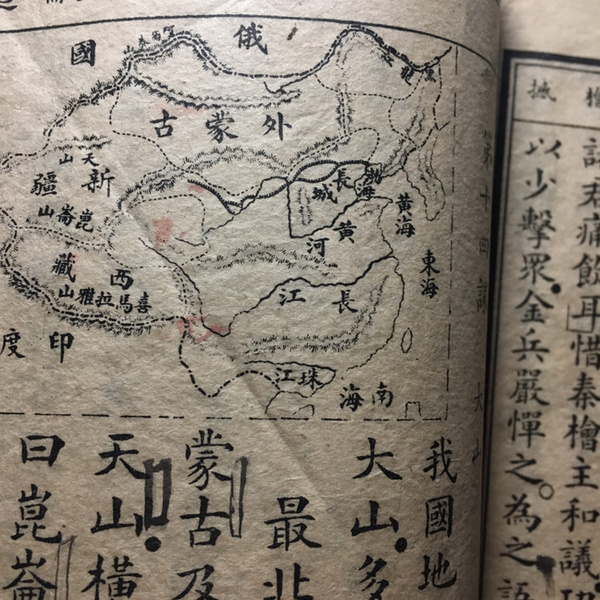 檜
撼
君痛飲耳惜秦檜主和議
以少擊眾.金兵嚴憚之。為之語
第十四課 大山
俄國
外蒙古
天山
新疆
崑崙山
西藏
喜馬拉雅山
印度
長城
渤海
黃海
黃河
東海
長江
珠江
南海
我國地
大山.多
最北
蒙古及
天山.橫
曰崑崙